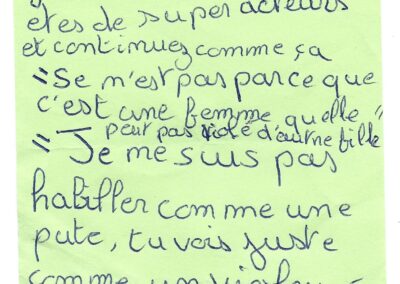 êtes de super acteurs
et continuez comme ça
"Se m'est pas parce que
c'est une femme quelle"
peut pas violé d'autre fille
"Je me suis pas
habiller comme une
pute, tu vois juste
comme un